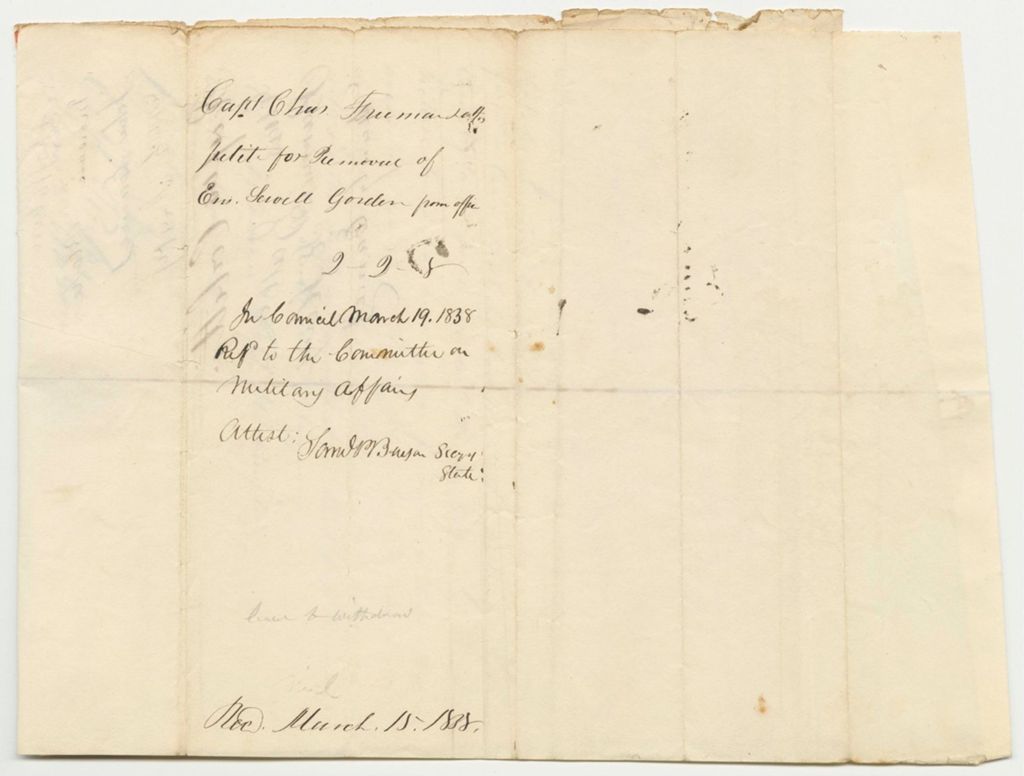 Capt Chas Freeman & als
petitn for Removal of
Ens. Sewell Gorden from office
In Council March 19. 1838
Refd to the Committee on
Military Affairs
Attest:
Saml P Benson Secry
State:
leave to withdraw
Recd. March. 15. 1838.